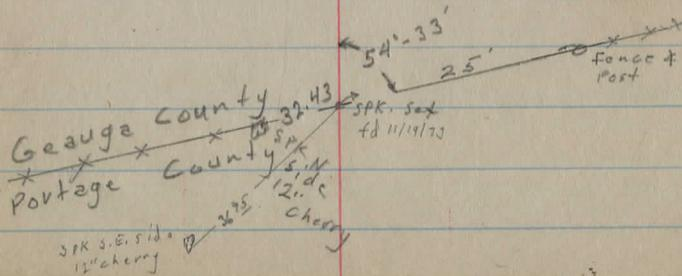 54'-33'
25'
fence &
Post
Geauga County
32.43
SPK. Set
fd 11/19/73
Portage County
SPK
S. N
Side
12"
Cherry
36.95
SPK S.E. side
12" cherry